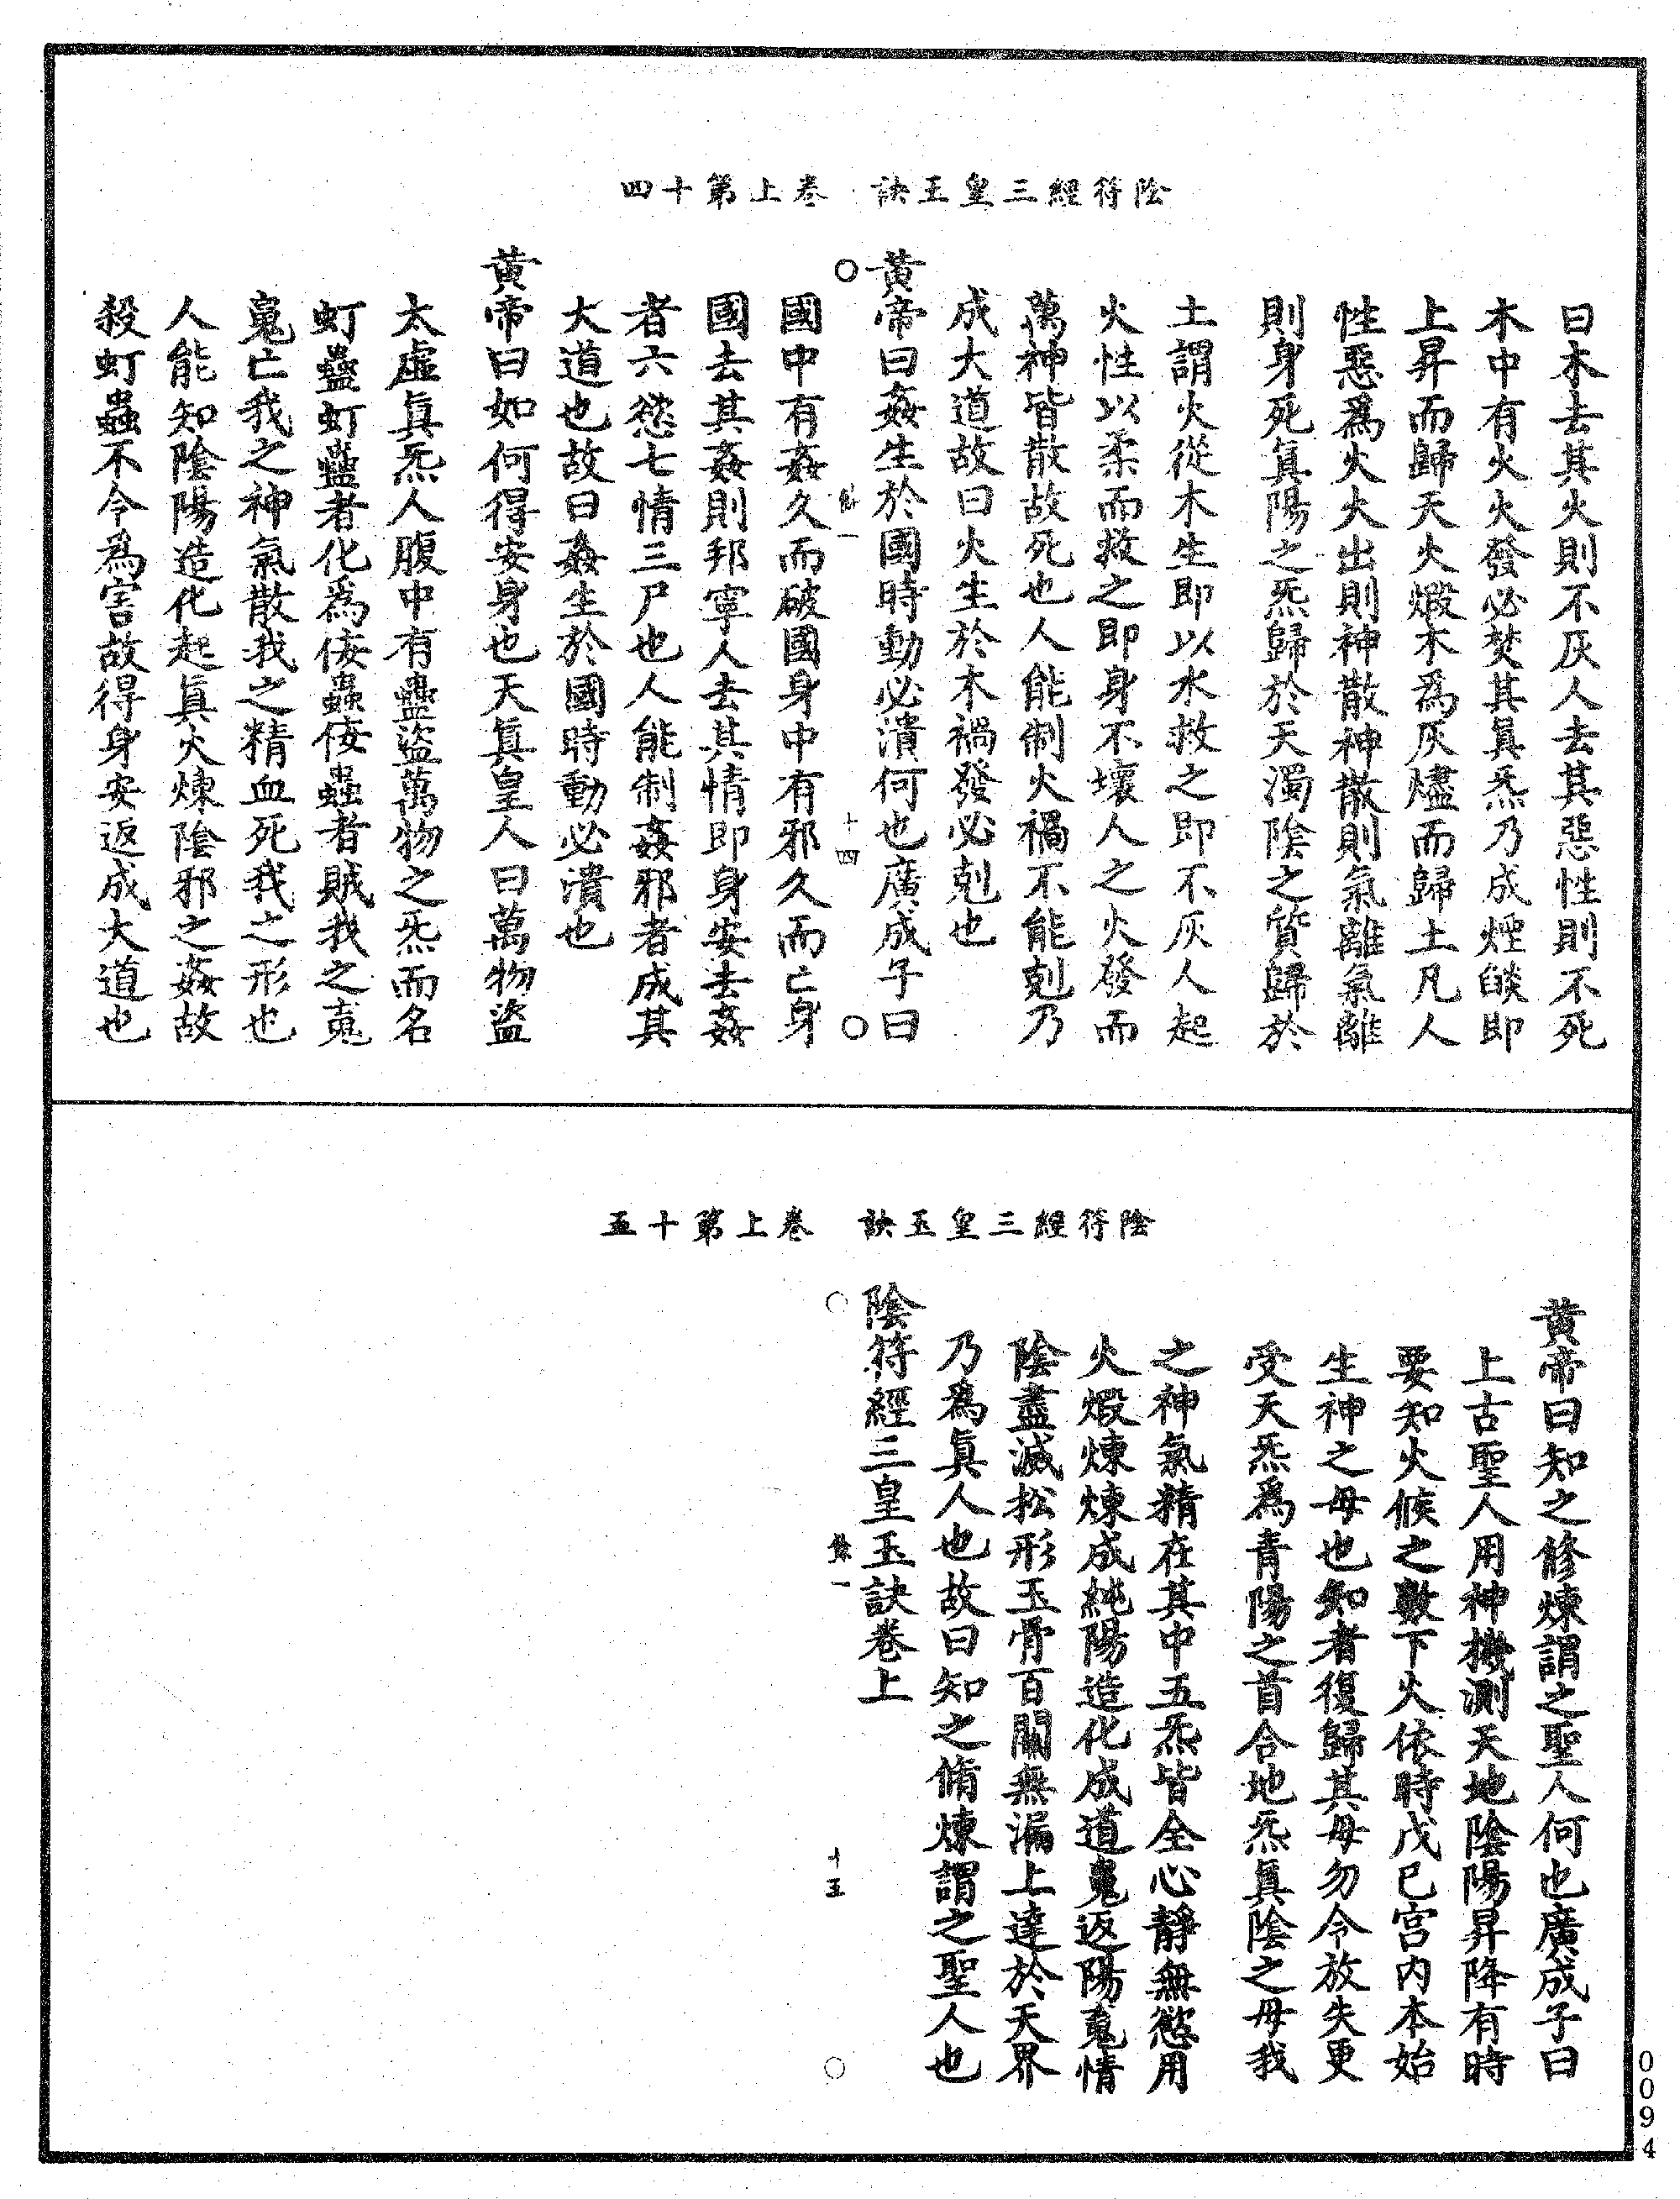 陰符經三皇玉訣　卷上第十四
曰木去其火則不灰人去其惡性則不死
木中有火火發必焚其眞炁乃成煙燄即
上昇而歸天火煅木爲灰燼而歸土凡人
性惡爲火火出則神散神散則氣離氣離
則身死眞陽之炁歸於天濁陰之質歸於
土謂火從木生即以水救之即不灰人起
火性以柔而救之即身不壞人之火發而
萬神皆散故死也人能制火禍不能剋乃
成大道故曰火生於木禍發必剋也
黃帝曰姦生於國時動必潰何也廣成子曰
十四
國中有姦久而破國身中有邪久而亡身
國去其姦則邦寧人去其情即身安去姦
者六慾七情三尸也人能制姦邪者成其
大道也故曰姦生於國時動必潰也
黃帝曰如何得安身也天眞皇人曰萬物盜
太虛眞炁人腹中有蠱盜萬物之炁而名
虰蠱虰蠱者化爲倿蟲倿蟲者賊我之䰟
䰟亡我之神氣散我之精血死我之形也
人能知陰陽造化起眞火煉陰邪之姦故
殺虰蟲不令爲害故得身安返成大道也
陰符經三皇玉訣　卷上第十五
黃帝曰知之修煉謂之聖人何也廣成子曰
上古聖人用神機測天地陰陽昇降有時
要知火候之數下火依時戊已宮内本始
生神之母也知者復歸其母勿令放失更
受天炁爲青陽之首合地炁眞陰之母我
之神氣精在其中五炁皆全心靜無慾用
火煅煉煉成純陽造化成道䰟返陽䰟情
陰盡滅松形玉骨百關無漏上達於天界
乃爲眞人也故曰知之脩煉謂之聖人也
陰符經三皇玉訣卷上
十五
0094